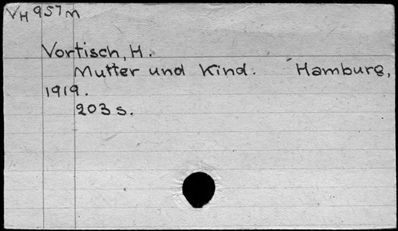 VH957m
Vortisch, H.
Mutter und Kind. Hamburg,
1919.
203 s.